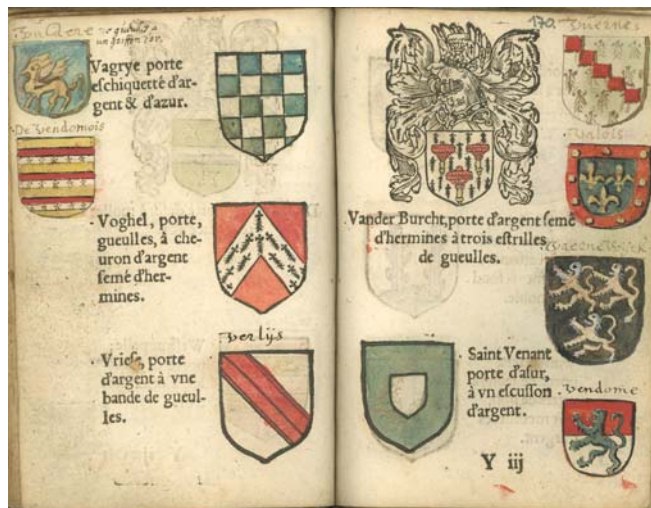 ne gueulle a
un griffon d'or.
Vagrye porte
eſchiquetté d'ar-
gent & d'azur.
De Vendomois
Voghel, porte,
gueulles, à che-
uron d'argent
ſemé d'her-
mines.
Verlijs
Vrieſe, porte
d'argent à vne
bande de gueul-
les.
170.
Valois
Vander Burcht, porte d'argent ſemé
d'hermines à trois eſtrilles
de gueulles.
Saint Venant
porte d'aſur,
à vn eſcuſſon
d'argent.
Vendome
Y iij